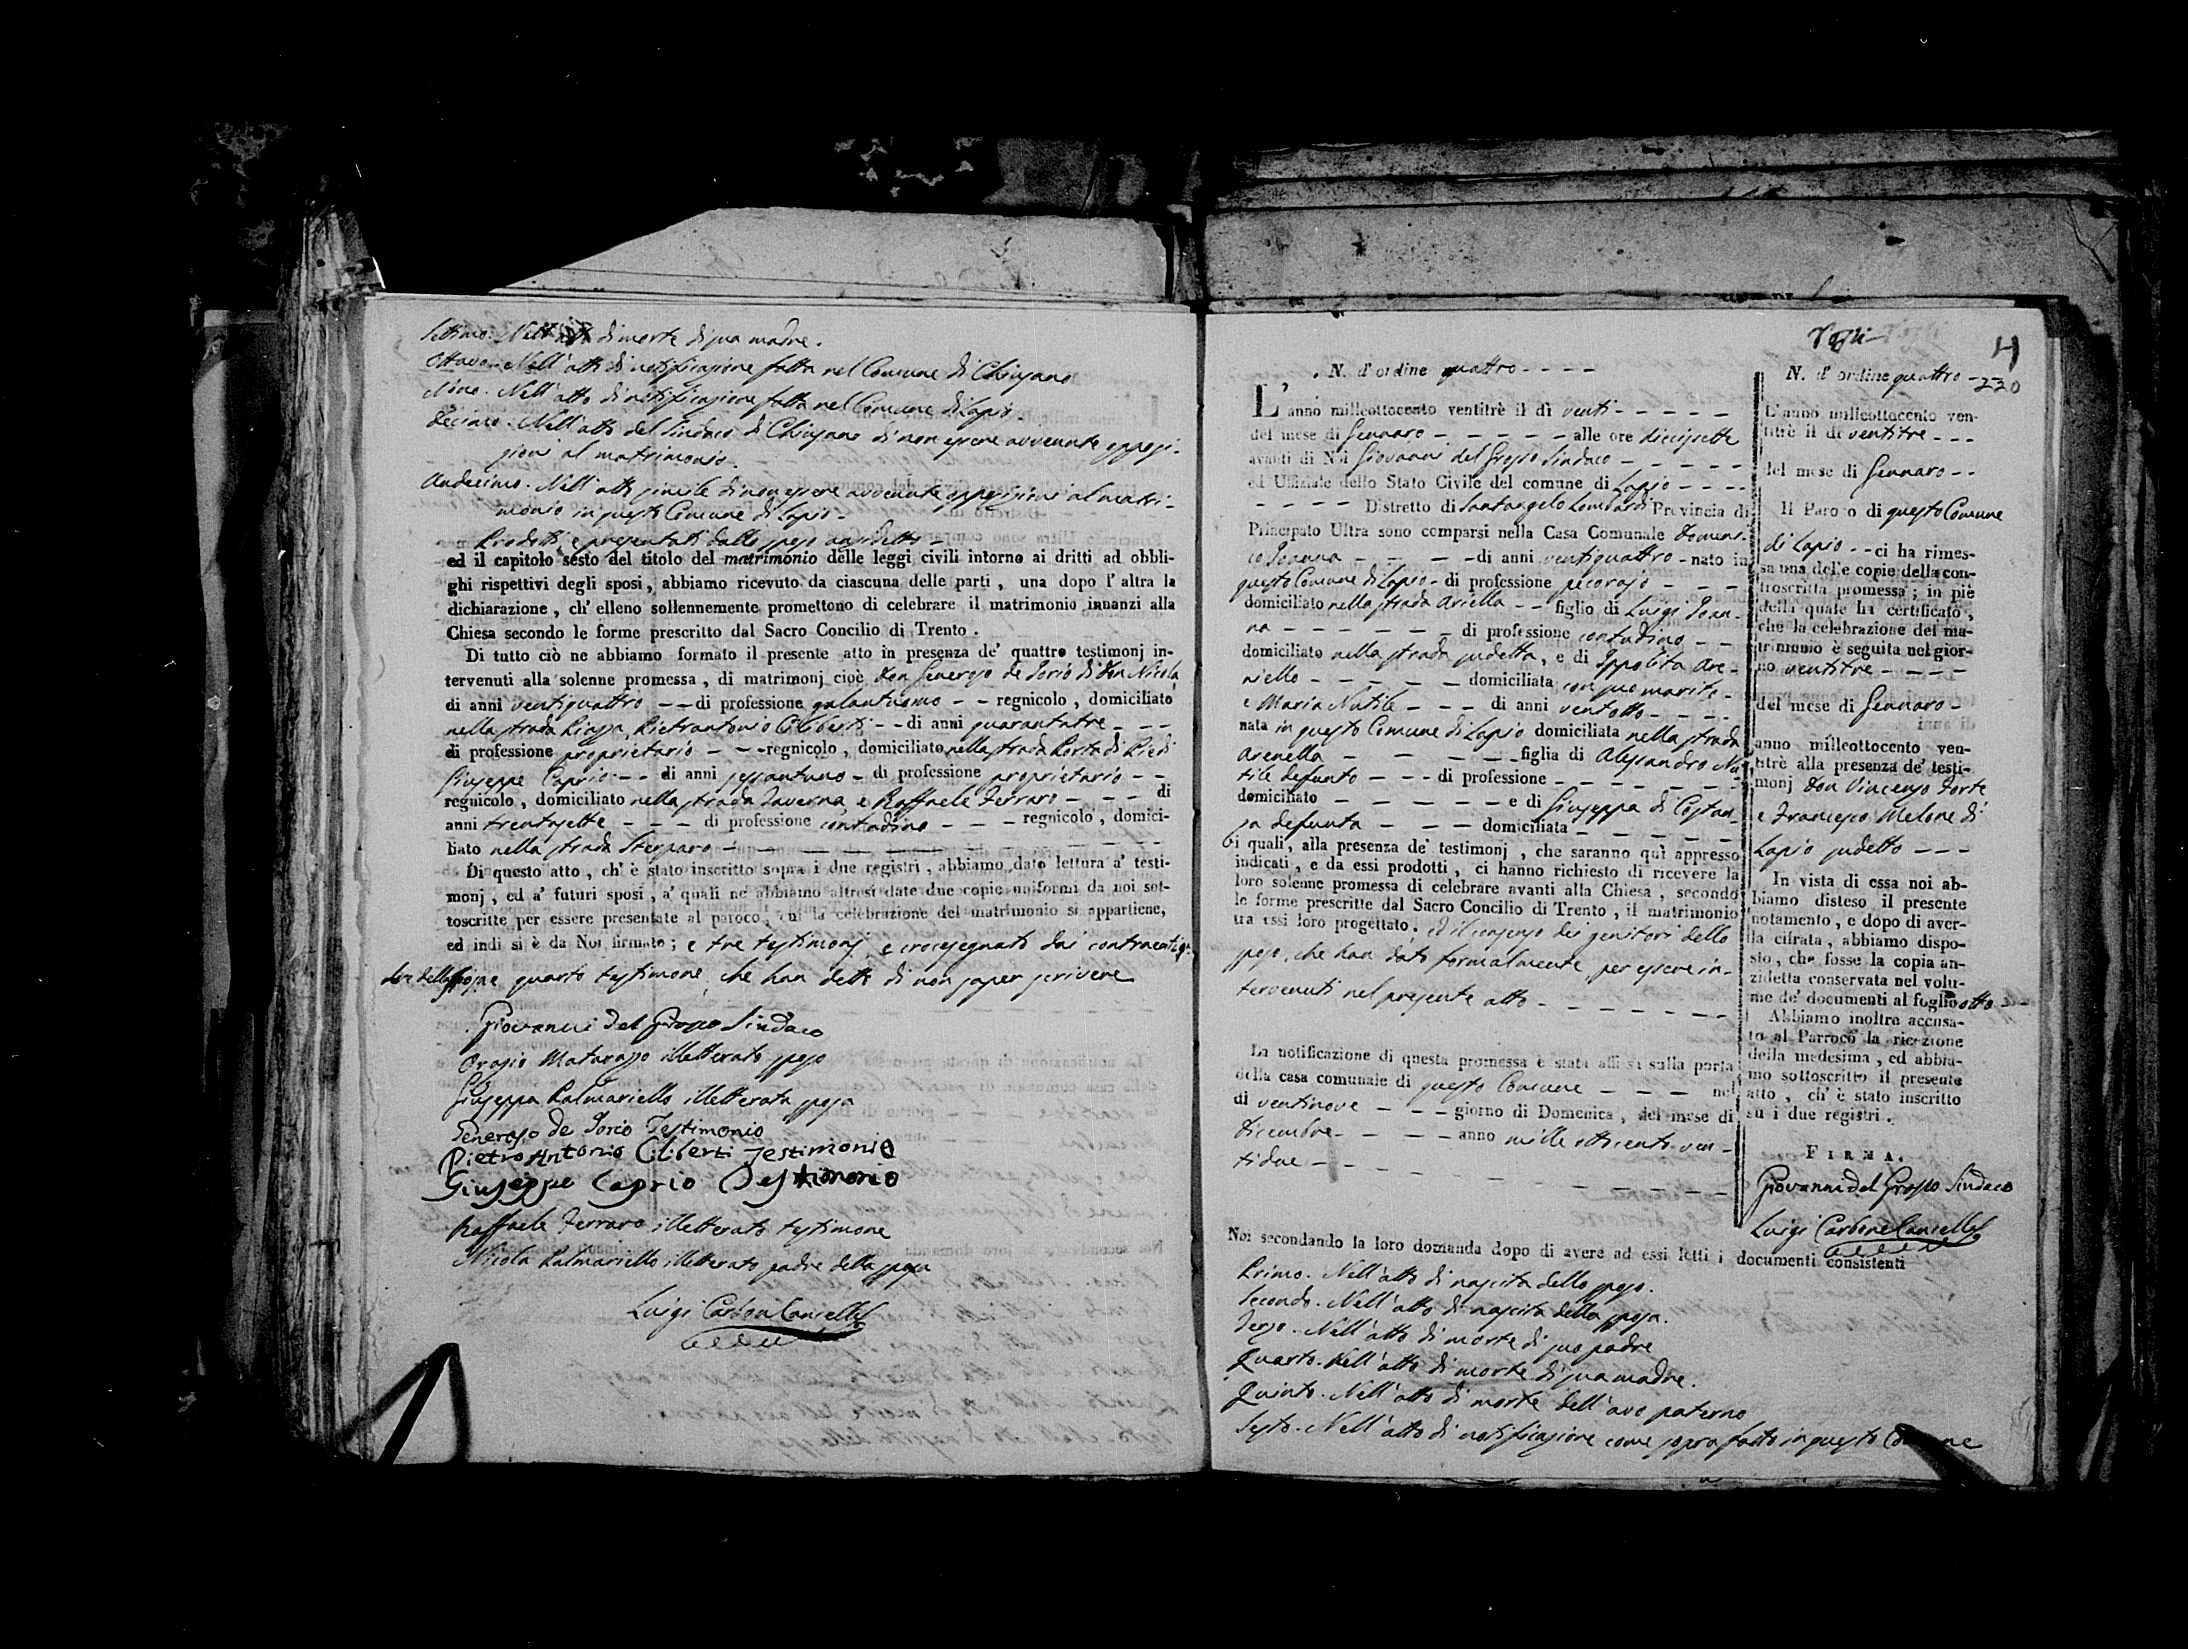 Settimo. Nell'atto di morte di sua madre.
Ottavo. Nell'atto di notificazione fatta nel Comune di Chiusano
Nono. Nell'atto di notificazione fatta nel Comune di Lapio.
Decimo. Nell'atto del Sindaco di Chiusano di non essere avvenute opposi-
zioni al matrimonio.
Undecimo. Nell'atto simile di non essere avvenute opposizioni al matri-
monio in questo Comune di Lapio.
Prodotti e presentati dallo sposo anzidetto
ed il capitolo sesto del titolo del matrimonio delle leggi civili intorno ai dritti ad obbli-
ghi rispettivi degli sposi, abbiamo ricevuto da ciascuna delle parti, una dopo l'altra la
dichiarazione, ch'elleno sollennemente promettono di celebrare il matrimonio innanzi alla
Chiesa secondo le forme prescritto dal Sacro Concilio di Trento.
Di tutto ciò ne abbiamo formato il presente atto in presenza de' quattro testimonj in-
tervenuti alla solenne promessa, di matrimonj cioè Don Generoso de Iorio di Don Nicola
di anni ventiquattro - - di professione galantuomo - - regnicolo, domiciliato
nella strada Piazza, Pietrantonio Ciliberti - - di anni quarantatre - - -
di professione proprietario - - - regnicolo, domiciliato nella strada Porta di Piedi
Giuseppe Caprio - - di anni sessantuno - di professione proprietario - -
regnicolo, domiciliato nella strada Taverna, e Raffaele Ferraro - - - - di
anni trentasette - - - di professione contadino - - - regnicolo, domici-
liato nella strada Sterparo - - - - - - - -
Di questo atto, ch'è stato inscritto sopra i due registri, abbiamo dato lettura a' testi-
monj, ed a' futuri sposi, a' quali ne abbiamo altresì date due copie uniformi da noi sot-
toscritte per essere presentate al paroco, cui la celebrazione del matrimonio si appartiene,
ed indi si è da Noi firmato; e tre testimonj, e crocesegnato dai contraenti,
dre della sposa e quarto testimone, che han detto di non saper scrivere
Giovanni Del Grosso Sindaco
Orazio Matarazzo illetterato sposo
Giuseppa Palmariello illetterata sposa
Generoso de Iorio Testimonio
Pietro Antonio Ciliberti Testimonio
Giuseppe Caprio Testimonio
Raffaele Ferraro illetterato testimone
Nicola Palmariello illetterato padre della sposa
Luigi Carbone Cancelle
4
N. d'ordine quattro - - - -
L'anno milleottocento ventitrè il dì venti - - - - -
del mese di Gennaro - - - - - alle ore diecisette
avanti di Noi Giovanni del Grosso Sindaco - - - - -
ed Uffiziale dello Stato Civile del comune di Lapio - - - -
- - - - Distretto di Santangelo Lombardi Provincia di
Principato Ultra sono comparsi nella Casa Comunale Domeni-
co Ioanna - - - - di anni ventiquattro - nato in
questo Comune di Lapio - di professione pecorajo - - -
domiciliato nella strada Ariella - - figlio di Luigi Ioan-
na - - - - - - di professione contadino - -
domiciliato nella strada sudetta, e di Ippolita Are-
niello - - - - - domiciliata con suo marito -
e Maria Nutile - - - di anni ventotto - - - -
nata in questo Comune di Lapio domiciliata nella strada
Arenella - - - - - figlia di Alesandro Nu-
tile defunto - - - di professione - - - - - -
domiciliato - - - - - e di Giuseppa di Costan-
za defunta - - - domiciliata - - - - -
i quali, alla presenza de' testimonj, che saranno quì appresso
indicati, e da essi prodotti, ci hanno richiesto di ricevere la
loro solenne promessa di celebrare avanti alla Chiesa, secondo
le forme prescritte dal Sacro Concilio di Trento, il matrimonio
tra essi loro progettato. Ed il consenso dei genitori dello
sposo, che han dato formalmente per essere in-
tervenuti nel presente atto - - - - - - -
La notificazione di questa promessa è stata affissa sulla porta
della casa comunale di questo Comune - - - nel
dì ventinove - - - giorno di Domenica, del mese di
Dicembre - - - - anno mille ottocento ven-
tidue - - - - - - - - -
Noi secondando la loro domanda dopo di avere ad essi letti i documenti consistenti
Primo. Nell'atto di nascita dello sposo.
Secondo. Nell'atto di nascita della sposa.
Terzo. Nell'atto di morte di suo padre
Quarto. Nell'atto di morte di sua madre.
Quinto. Nell'atto di morte dell'avo paterno
Sesto. Nell'atto di notificazione come sopra fatto in questo Comune
N. d'ordine quattro -
220
L'anno milleottocento ven-
titrè il dì ventitre - - -
del mese di Gennaro - -
Il Paroco di questo Comune
di Lapio - - ci ha rimes-
sa una delle copie della con-
troscritta promessa; in piè
della quale ha certificato,
che la celebrazione del ma-
trimonio è seguita nel gior-
no ventitre - - - -
del mese di Gennaro -
anno milleottocento ven-
titrè alla presenza de' testi-
monj Don Vincenzo Forte
e Francesco Melone di
Lapio sudetto - - -
In vista di essa noi ab-
biamo disteso il presente
notamento, e dopo di aver-
la cifrata, abbiamo dispo-
sto, che fosse la copia an-
zidetta conservata nel volu-
me de' documenti al foglio otto
Abbiamo inoltre accusa-
to al Parroco la ricezione
della medesima, ed abbia-
mo sottoscritto il presente
atto, ch'è stato inscritto
su i due registri.
FIRMA.
Giovanni del Grosso Sindaco
Luigi Carbone Cancelle